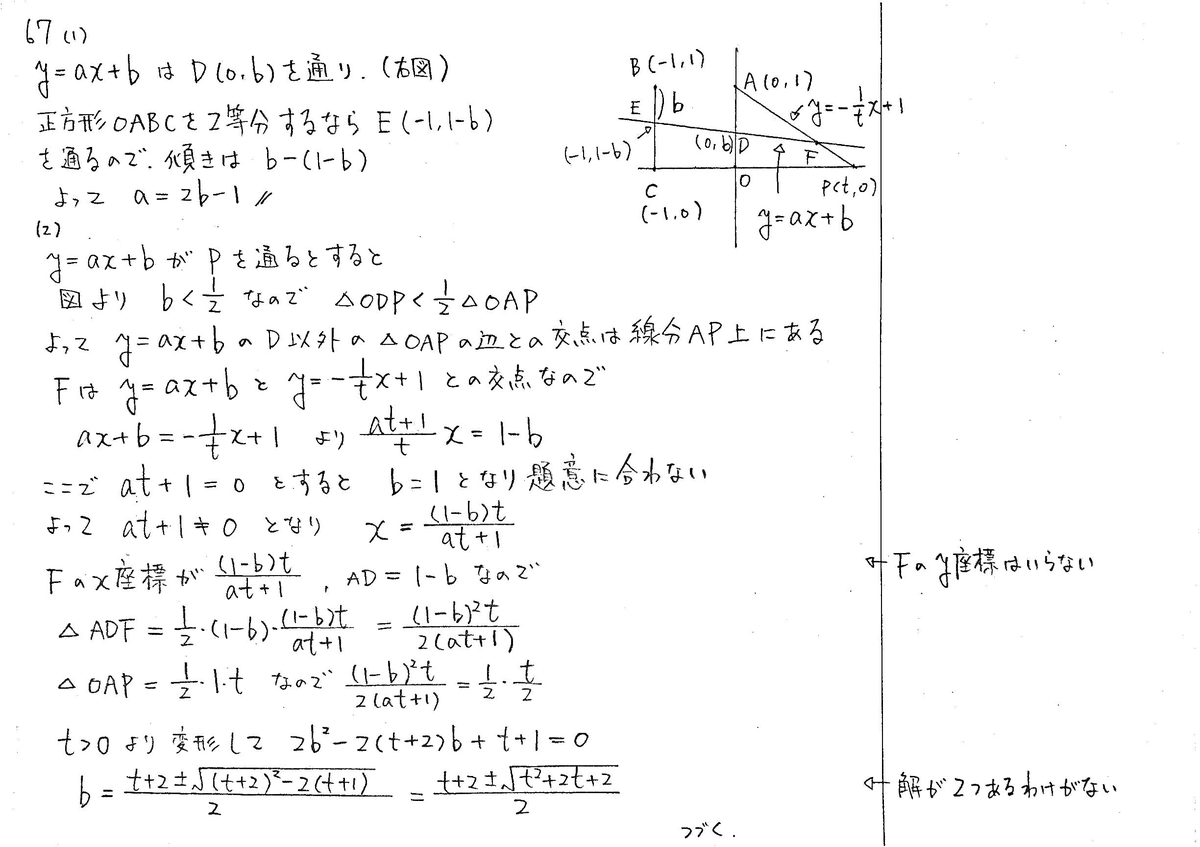 67 (1)
y=ax+b は D(0,b)を通り.(右図)
正方形OABCを2等分するなら E(-1,1-b)
を通るので.傾きは b-(1-b)
よって a=2b-1 //
(2)
y=ax+b が Pを通るとすると
図より b<1/2 なので △ODP<1/2△OAP
よって y=ax+b の D以外の △OAPの辺との交点は線分AP上にある
Fは y=ax+b と y=-1/t x+1 との交点なので
ax+b=-1/t x+1 より (at+1)/t x=1-b
ここで at+1=0 とすると b=1となり題意に合わない
よって at+1≠0 となり x=(1-b)t/(at+1)
Fのx座標が (1-b)t/(at+1) , AD=1-b なので
△ADF=1/2・(1-b)・(1-b)t/(at+1) =(1-b)²t/2(at+1)
△OAP=1/2・1・t なので (1-b)²t/2(at+1)=1/2・t/2
t>0より変形して 2b²-2(t+2)b+t+1=0
b=(t+2±√((t+2)²-2(t+1)))/2 =(t+2±√(t²+2t+2))/2
つづく.
B(-1,1)
A(0,1)
y=-1/t x+1
E
b
(-1,1-b)
(0,b)
D
F
C
(-1,0)
O
P(t,0)
y=ax+b
⇦ Fのy座標はいらない
⇦ 解が2つあるわけがない